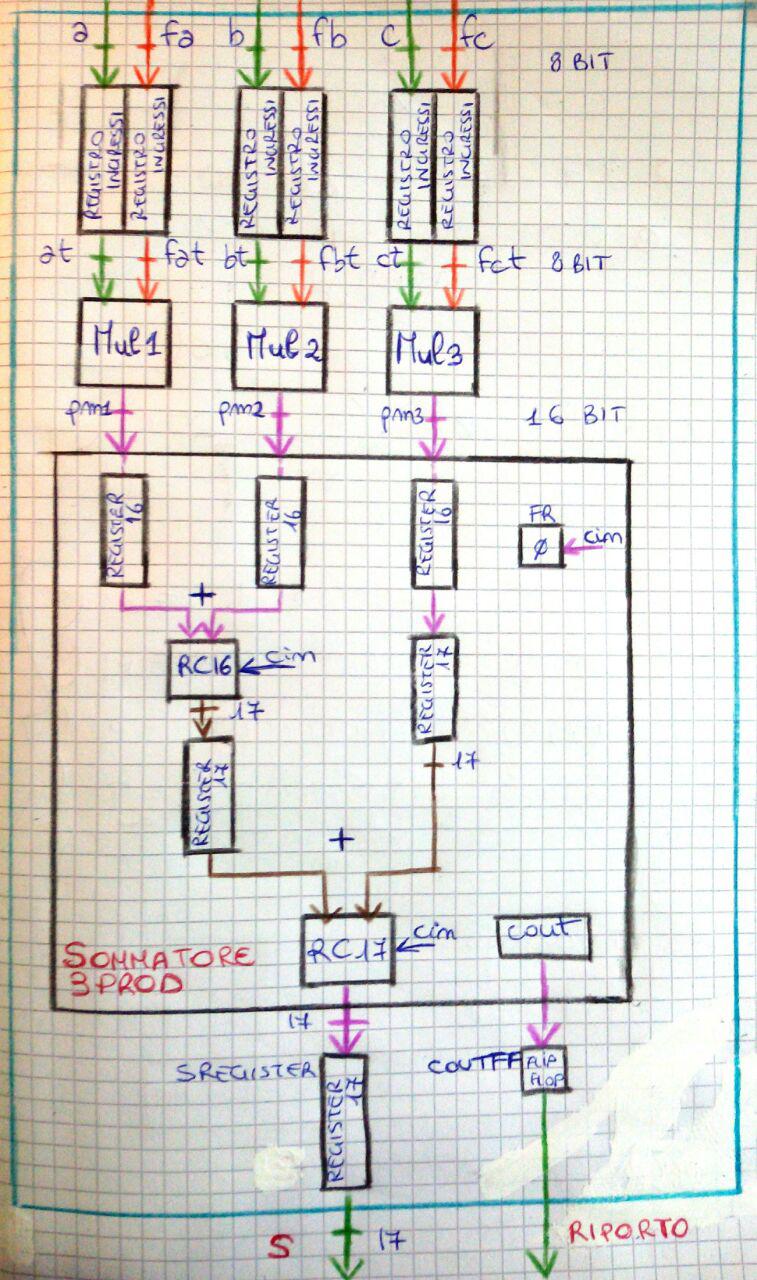 a fa b fb c fc
8 BIT
REGISTRO INGRESSI
REGISTRO INGRESSI
REGISTRO INGRESSI
REGISTRO INGRESSI
REGISTRO INGRESSI
REGISTRO INGRESSI
at fat bt fbt ct fct 8 BIT
Mul1 Mul2 Mul3
pm1 pm2 pm3 16 BIT
REGISTER 16
REGISTER 16
REGISTER 16
FR
Ø cin
+
RC16 cin
REGISTER 17
17
REGISTER 17
17
+
RC17 cin
cout
SOMMATORE
3PROD
17
SREGISTER
REGISTER 17
COUTFF
FLIP
FLOP
S 17
RIPORTO